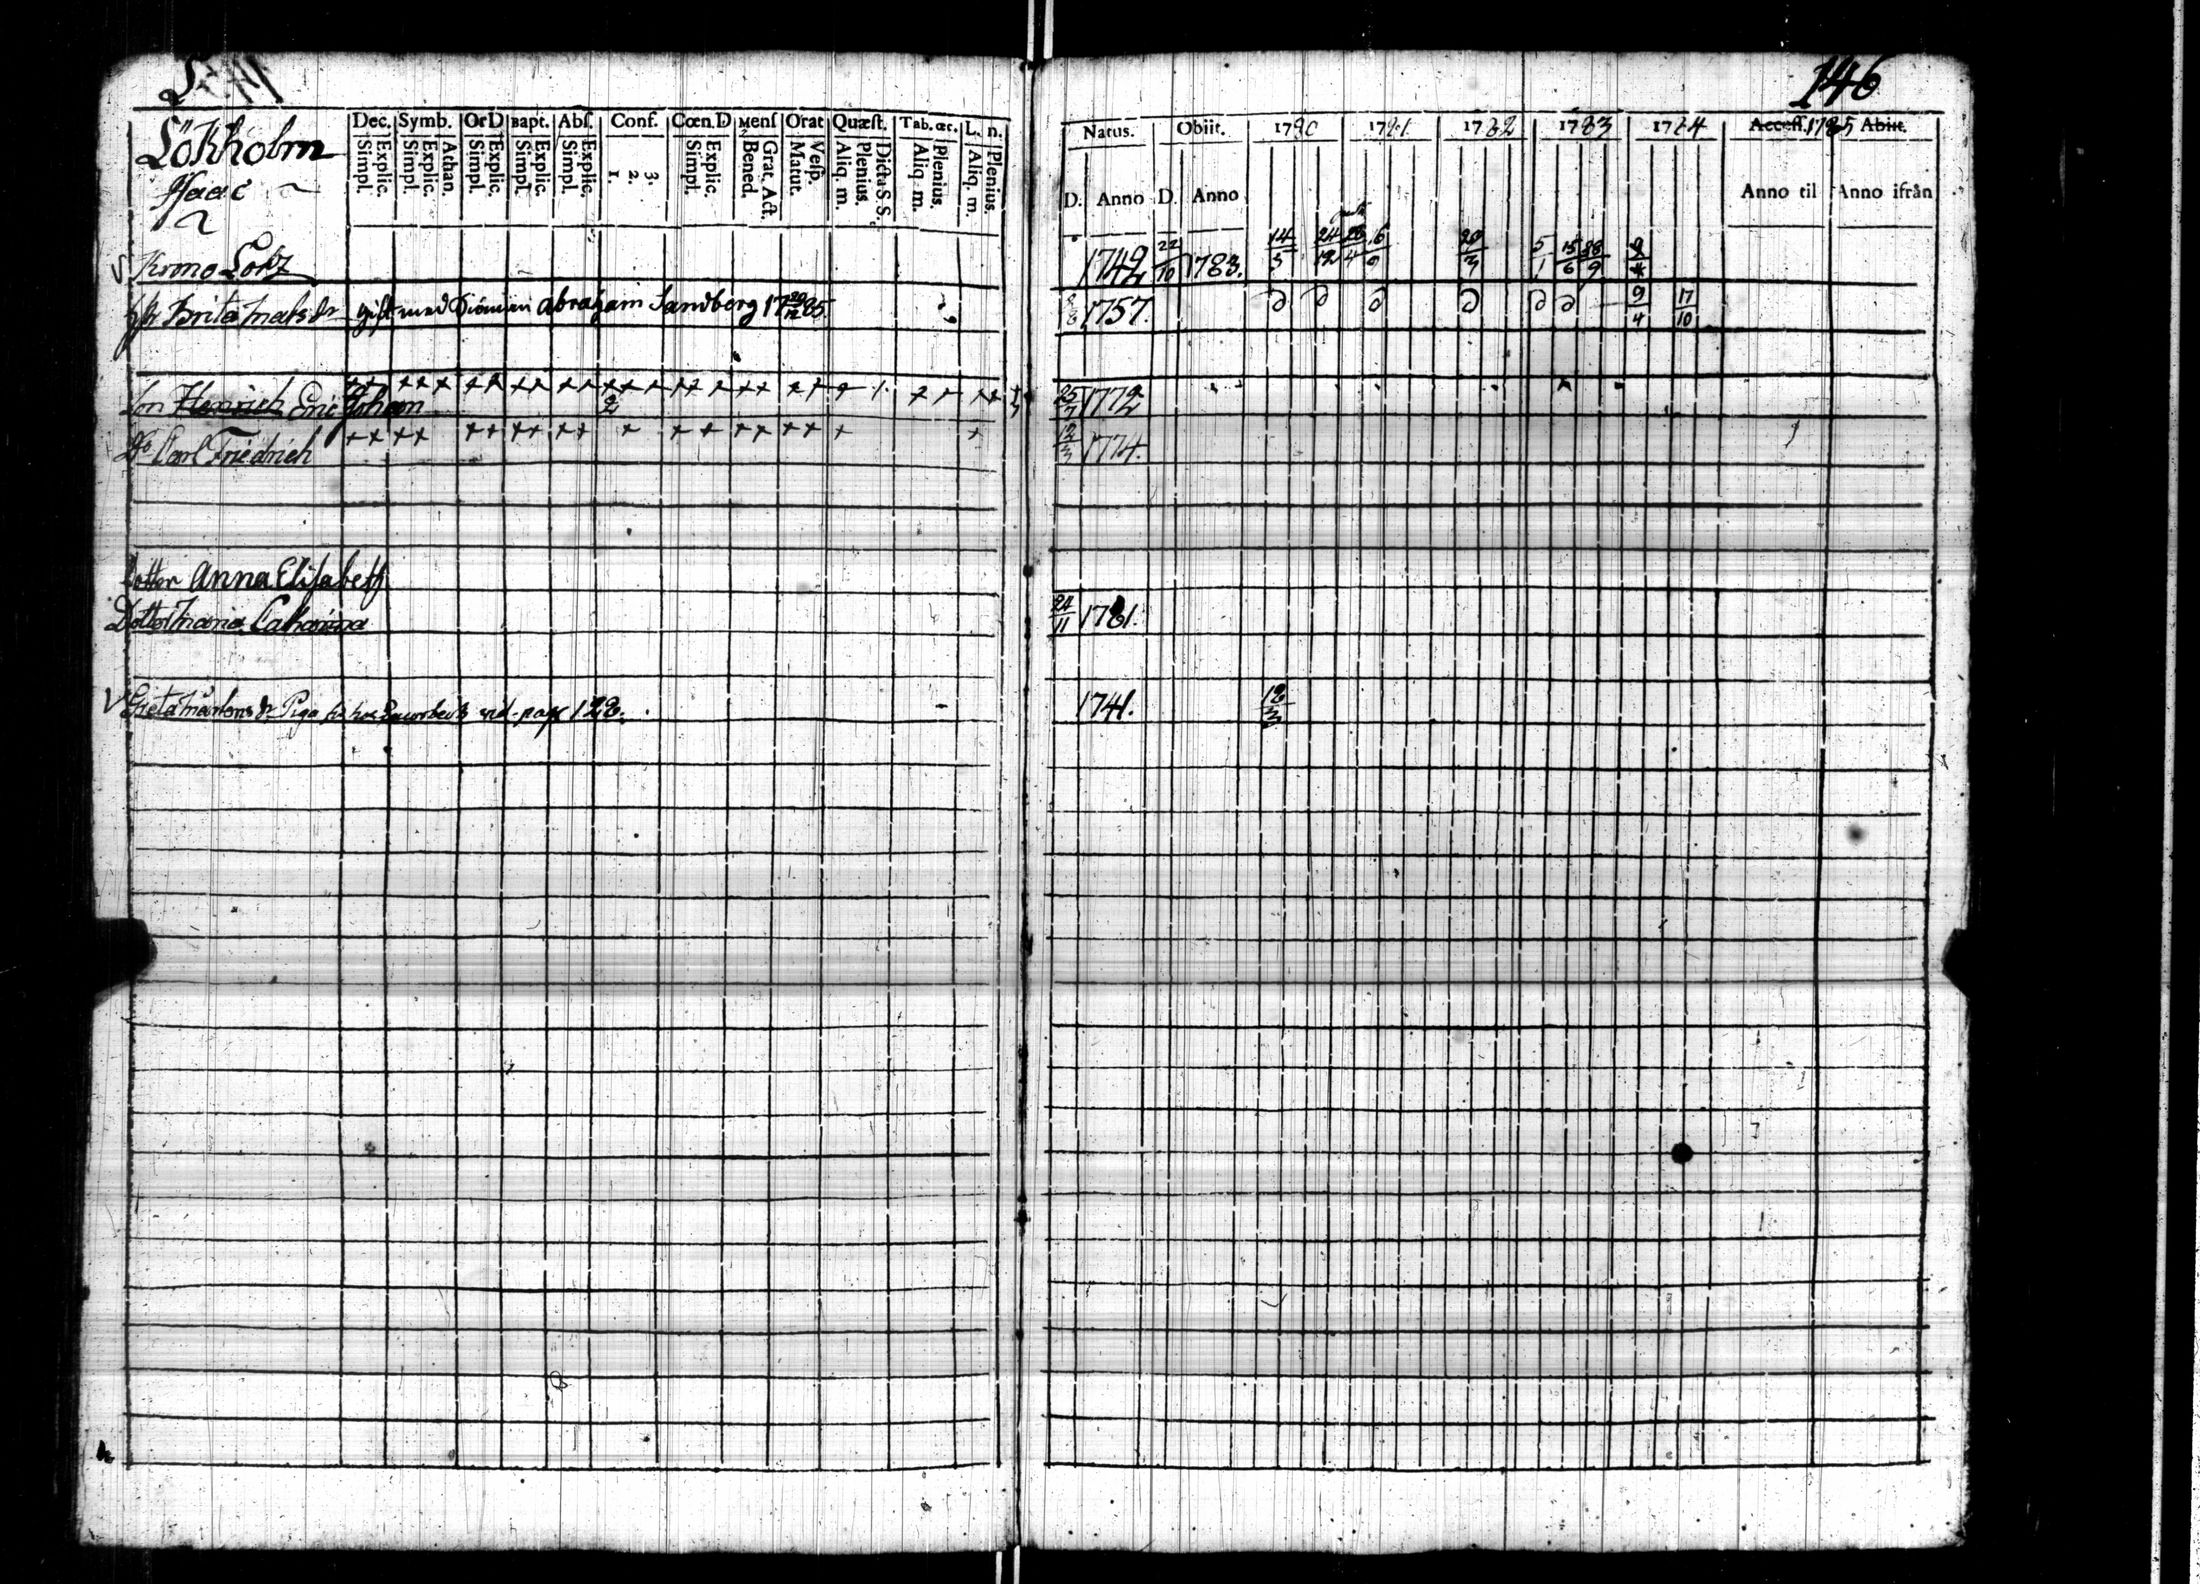 146
Lökholm
Dec. Symb. Or D Bapt. Abſ. Conf. Cœn. D Menſ Orat Quæſt. Tab. œc. L. n.
Simpl. Explic. Simpl. Explic. Athan. Simpl. Explic. Simpl. Explic. Simpl. Explic. 1. 2. 3. Simpl. Explic. Bened. Grat. Act. Matut. Veſp. Aliq. m. Plenius. Dicta S. S. Aliq. m. Plenius. Aliq. m. Plenius.
Natus. Obiit. 1780 1781 1782 1783 1784 Acceſſ. 1785 Abiit.
D. Anno D. Anno Anno til Anno ifrån
Krono Lotz 1742 22/10 1783. 14/5 24/12 6/9 20/3 5/1 15/6
Brita Matsdr gift med Abraham Sandberg 1757. 9/4 17/10
Son Henrich Eric Johan 25/7 1772
Do Carl Friedrich 12/3 1774.
Dotter Anna Elisabeth
Dotter Maria Catharina 24/11 1781.
Greta Mårtensdr Piga hos pag 128. 1741. 12/3